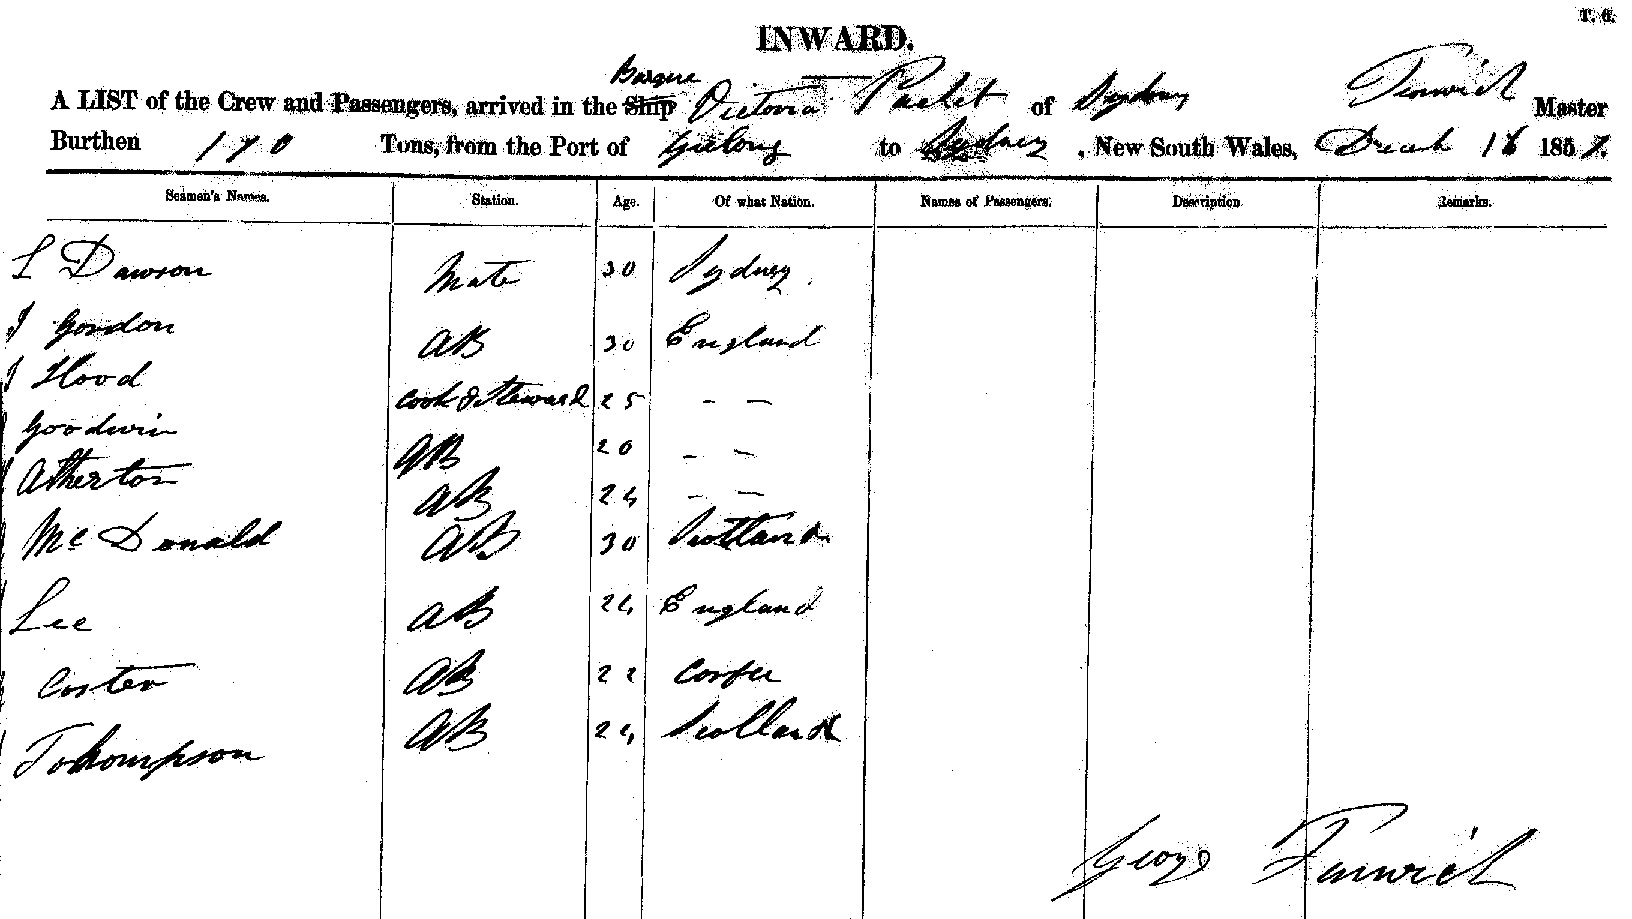 T. G.
INWARD.
Barque
A LIST of the Crew and Passengers, arrived in the Ship Victoria Packet of Sydney Fenwick Master
Burthen 170 Tons, from the Port of Geelong to Sydney, New South Wales, Decr 16 1857.
Seamen's Names. Station. Age. Of what Nation. Names of Passengers. Description Remarks.
L Dawson Mate 30 Sydney
J Gordon AB 30 England
J Hood Cook & Steward 25 — —
Goodwin AB 20 — —
Atherton AB 24 — —
Mc Donald AB 30 Scotland
Lee AB 24 England
Coster AB 22 Corfu
Tohompson AB 24 Scotland
George Fenwick